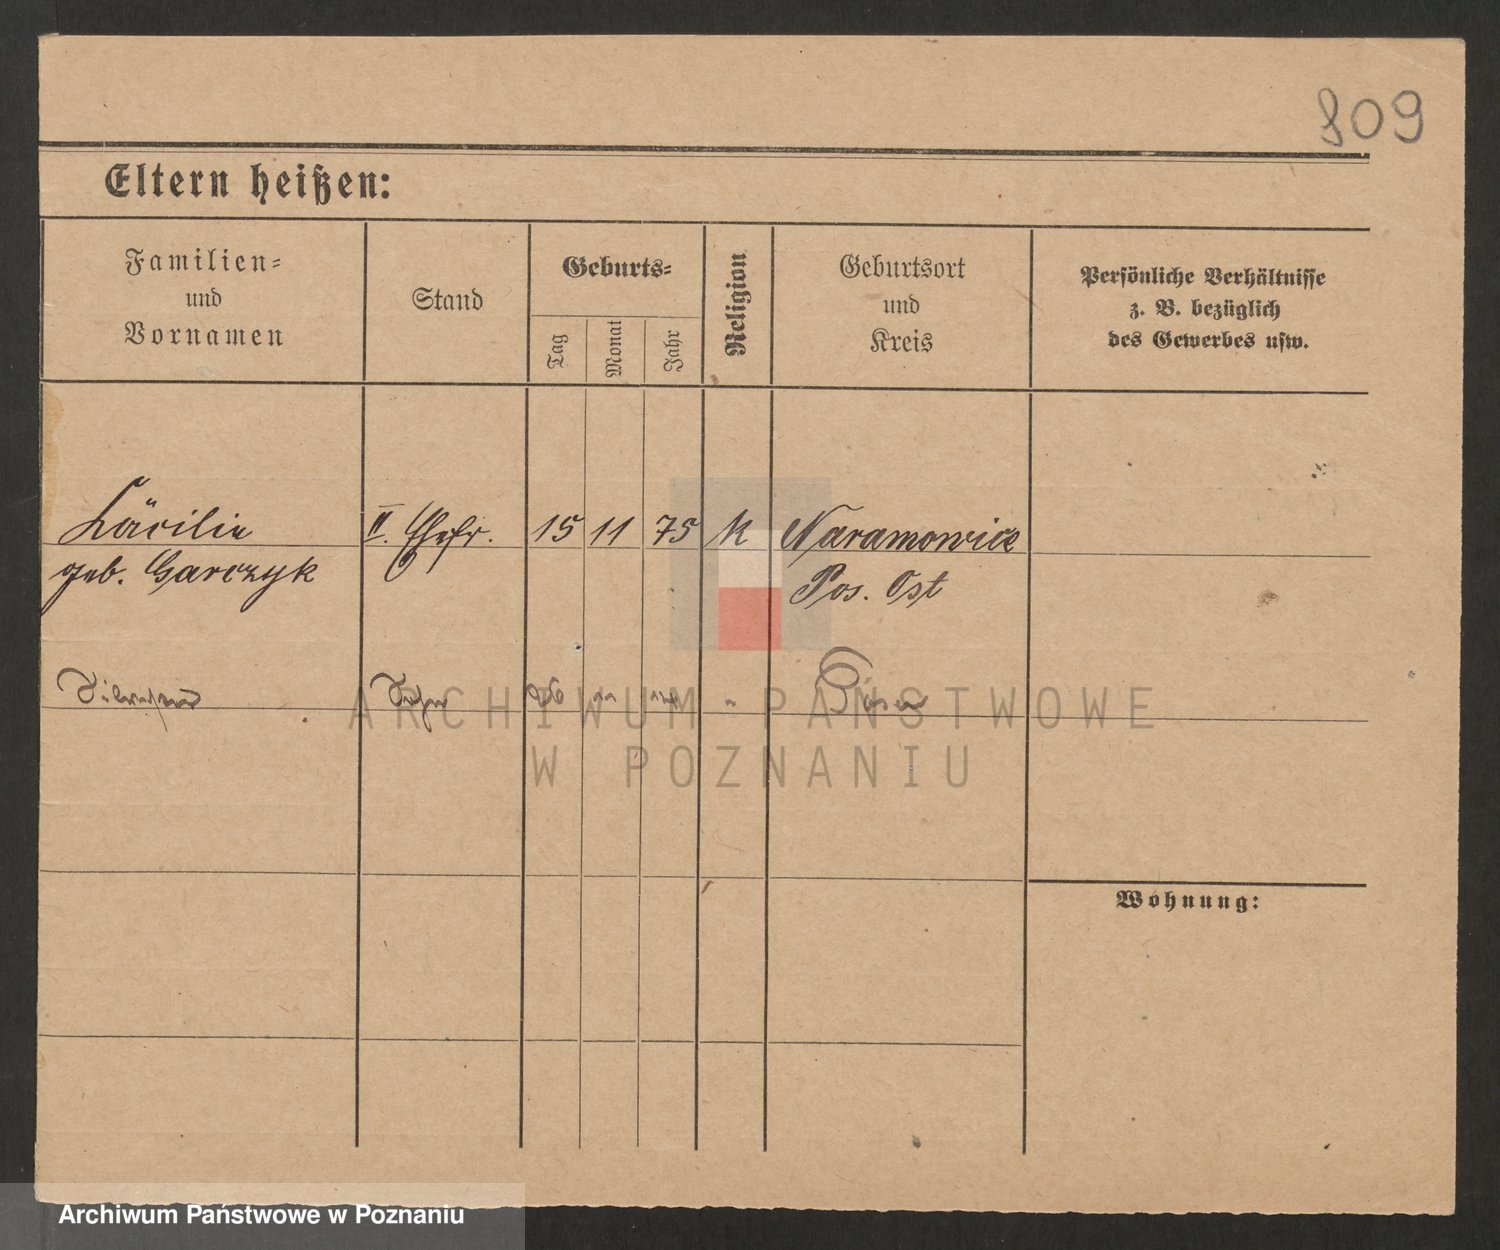 809
Eltern heißen:
Familien-
und
Vornamen
Stand
Geburts-
Tag
Monat
Jahr
Religion
Geburtsort
und
Kreis
Persönliche Verhältnisse
z. B. bezüglich
des Gewerbes usw.
Cäcilie II. Ehefr. 15 11 75 k Naramowice
geb. Garczyk Pos. Ost
Sohn " Posen
Wohnung:
ARCHIWUM PAŃSTWOWE
W POZNANIU
Archiwum Państwowe w Poznaniu